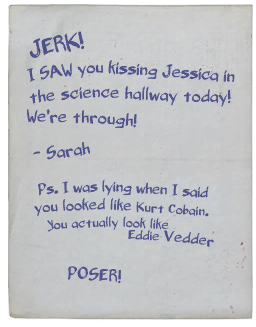 JERK!
I SAW you kissing Jessica in
the science hallway today!
We're through!
- Sarah
Ps. I was lying when I said
you looked like Kurt Cobain.
You actually look like
Eddie Vedder
POSER!